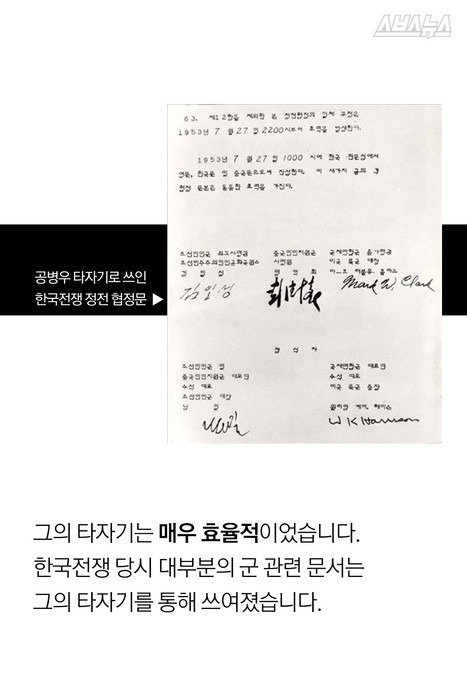 스브스뉴스
63. 제12항을 제외한 본 정전협정의 일체 규정은
1953년 7월 27일 2200시부터 효력을 발생한다.
1953년 7월 27일 1000 시에 한국 판문점에서
영문, 한국문 및 중국문으로써 작성한다. 이 세가지 글의 각
협정 문본은 동등한 효력을 가진다.
조선인민군 최고사령관
조선민주주의인민공화국원수
김 일 성
중국인민지원군
사령원
팽 덕 회
국제연합군 총사령관
미국 육군 대장
마-크 더블유. 클라크
김일성
彭德懷
Mark W. Clark
참 석 자
조선인민군 및
중국인민지원군 대표단
수석 대표
조선인민군 대장
남 일
국제연합군 대표단
수석 대표
미국 육군 중장
윌리암 케이. 해리슨
남일
W K Harrison
공병우 타자기로 쓰인
한국전쟁 정전 협정문 ▶
그의 타자기는 매우 효율적이었습니다.
한국전쟁 당시 대부분의 군 관련 문서는
그의 타자기를 통해 쓰여졌습니다.